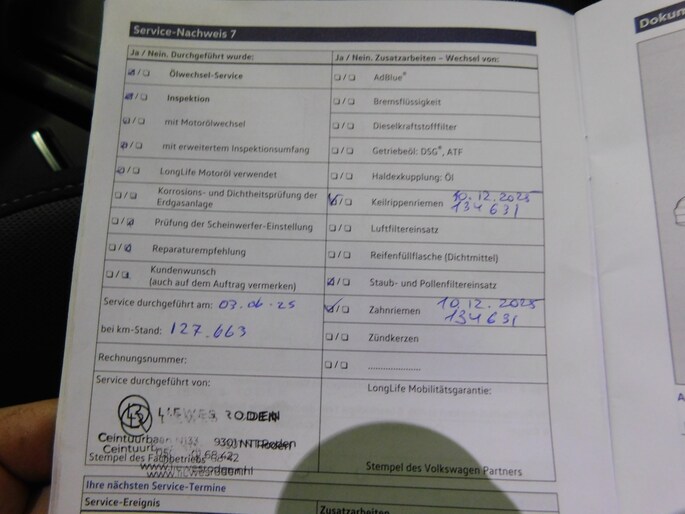 Service-Nachweis 7
Dokum
Ja / Nein. Durchgeführt wurde:
Ölwechsel-Service
Inspektion
mit Motorölwechsel
mit erweitertem Inspektionsumfang
LongLife Motoröl verwendet
Korrosions- und Dichtheitsprüfung der
Erdgasanlage
Prüfung der Scheinwerfer-Einstellung
Reparaturempfehlung
Kundenwunsch
(auch auf dem Auftrag vermerken)
Service durchgeführt am: 03.06.25
bei km-Stand: 127.663
Rechnungsnummer:
Service durchgeführt von:
LIEWES RODEN
9301 NT Roden
Stempel des Fachbetriebs
www.liewesroden.nl
Ja / Nein. Zusatzarbeiten – Wechsel von:
AdBlue®
Bremsflüssigkeit
Dieselkraftstofffilter
Getriebeöl: DSG®, ATF
Haldexkupplung: Öl
Keilrippenriemen 10.12.2025
134631
Luftfiltereinsatz
Reifenfüllflasche (Dichtmittel)
Staub- und Pollenfiltereinsatz
Zahnriemen 10.12.2025
134631
Zündkerzen
....................
LongLife Mobilitätsgarantie:
Stempel des Volkswagen Partners
Ihre nächsten Service-Termine
Service-Ereignis
Zusatzarbeiten